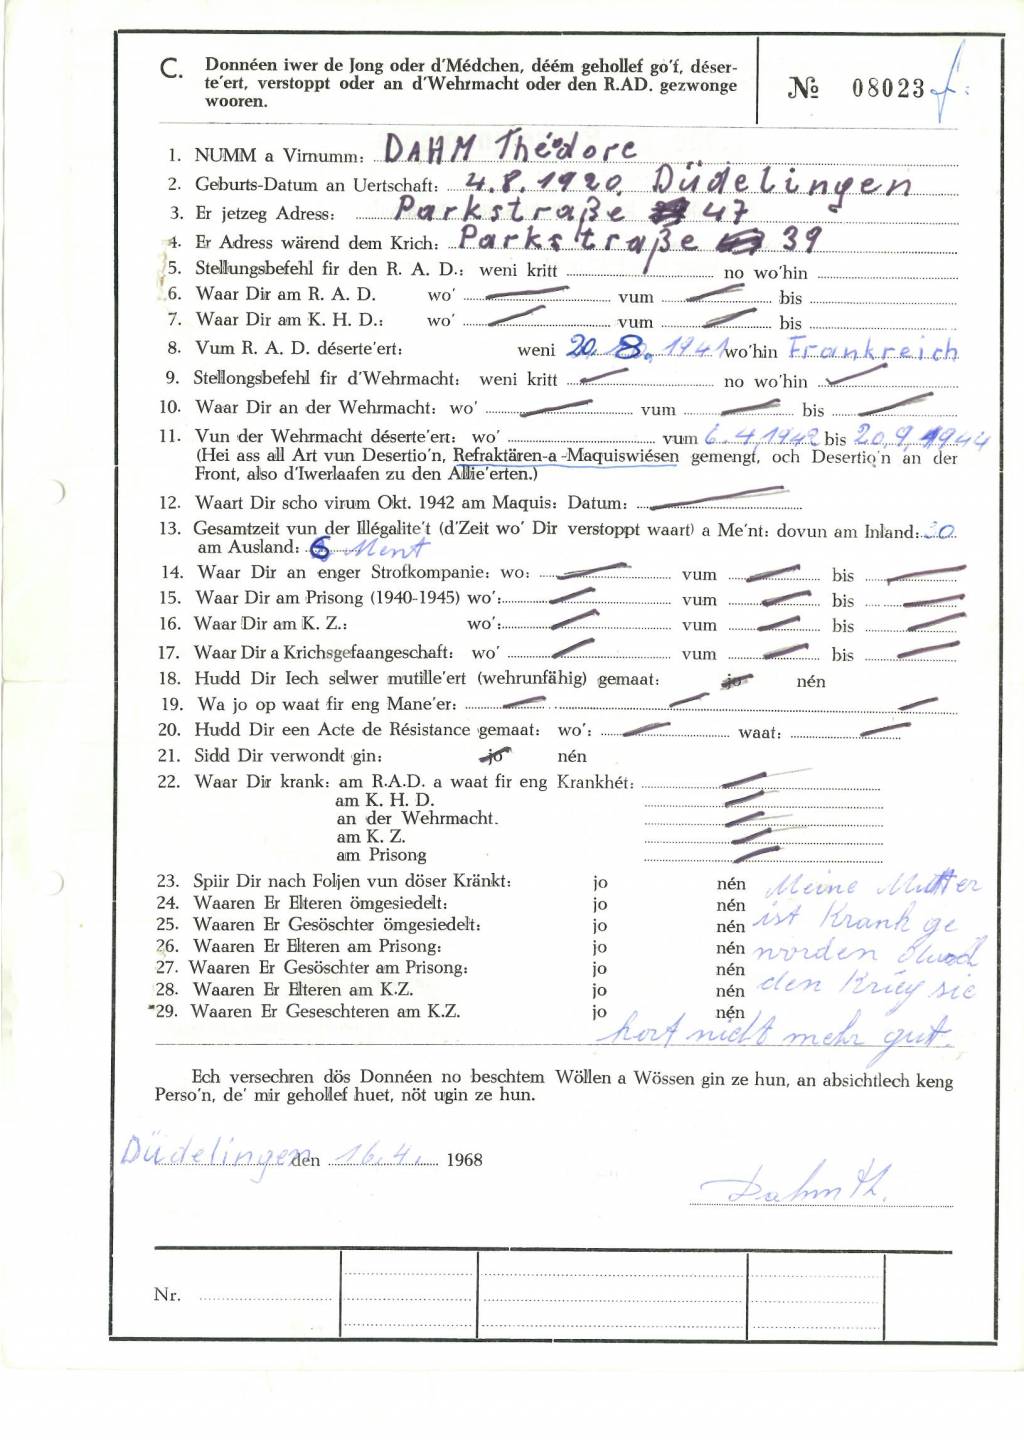 C. Donnéen iwer de Jong oder d'Médchen, déém gehollef go'f, déser-
te'ert, verstoppt oder an d'Wehrmacht oder den R.AD. gezwonge
wooren.
№ 08023
1. NUMM a Virnumm: DAHM Théodore
2. Geburts-Datum an Uertschaft: 4.8.1920. Düdelingen
3. Er jetzeg Adress: Parkstraße 47
4. Er Adress wärend dem Krich: Parkstraße 39
5. Stellungsbefehl fir den R. A. D.: weni kritt no wo'hin
6. Waar Dir am R. A. D. wo' vum bis
7. Waar Dir am K. H. D.: wo' vum bis
8. Vum R. A. D. déserte'ert: weni 20. 8. 1941 wo'hin Frankreich
9. Stellongsbefehl fir d'Wehrmacht: weni kritt no wo'hin
10. Waar Dir an der Wehrmacht: wo' vum bis
11. Vun der Wehrmacht déserte'ert: wo' vum 6.4.1942 bis 20.9.1944
(Hei ass all Art vun Desertio'n, Refraktären-a-Maquiswiésen gemengt, och Desertio'n an der
Front, also d'Iwerlaafen zu den Allie'erten.)
12. Waart Dir scho virum Okt. 1942 am Maquis: Datum:
13. Gesamtzeit vun der Illégalite't (d'Zeit wo' Dir verstoppt waart) a Me'nt: dovun am Inland: 30
am Ausland: 6 Ment
14. Waar Dir an enger Strofkompanie: wo: vum bis
15. Waar Dir am Prisong (1940-1945) wo': vum bis
16. Waar Dir am K. Z.: wo': vum bis
17. Waar Dir a Krichsgefaangeschaft: wo' vum bis
18. Hudd Dir Iech selwer mutille'ert (wehrunfähig) gemaat: jo nén
19. Wa jo op waat fir eng Mane'er:
20. Hudd Dir een Acte de Résistance gemaat: wo': waat:
21. Sidd Dir verwondt gin: jo nén
22. Waar Dir krank: am R.A.D. a waat fir eng Krankhét:
am K. H. D.
an der Wehrmacht.
am K. Z.
am Prisong
23. Spiir Dir nach Foljen vun döser Kränkt: jo nén Meine Mutter
24. Waaren Er Elteren ömgesiedelt: jo nén
25. Waaren Er Gesöschter ömgesiedelt: jo nén ist Krank ge
26. Waaren Er Elteren am Prisong: jo nén worden durch
27. Waaren Er Gesöschter am Prisong: jo nén
28. Waaren Er Elteren am K.Z. jo nén den Krieg sie
29. Waaren Er Geseschteren am K.Z. jo nén
hort nicht mehr gut.
Ech versechren dös Donnéen no beschtem Wöllen a Wössen gin ze hun, an absichtlech keng
Perso'n, de' mir gehollef huet, nöt ugin ze hun.
Düdelingen den 16.4. 1968
Dahm Th.
Nr.